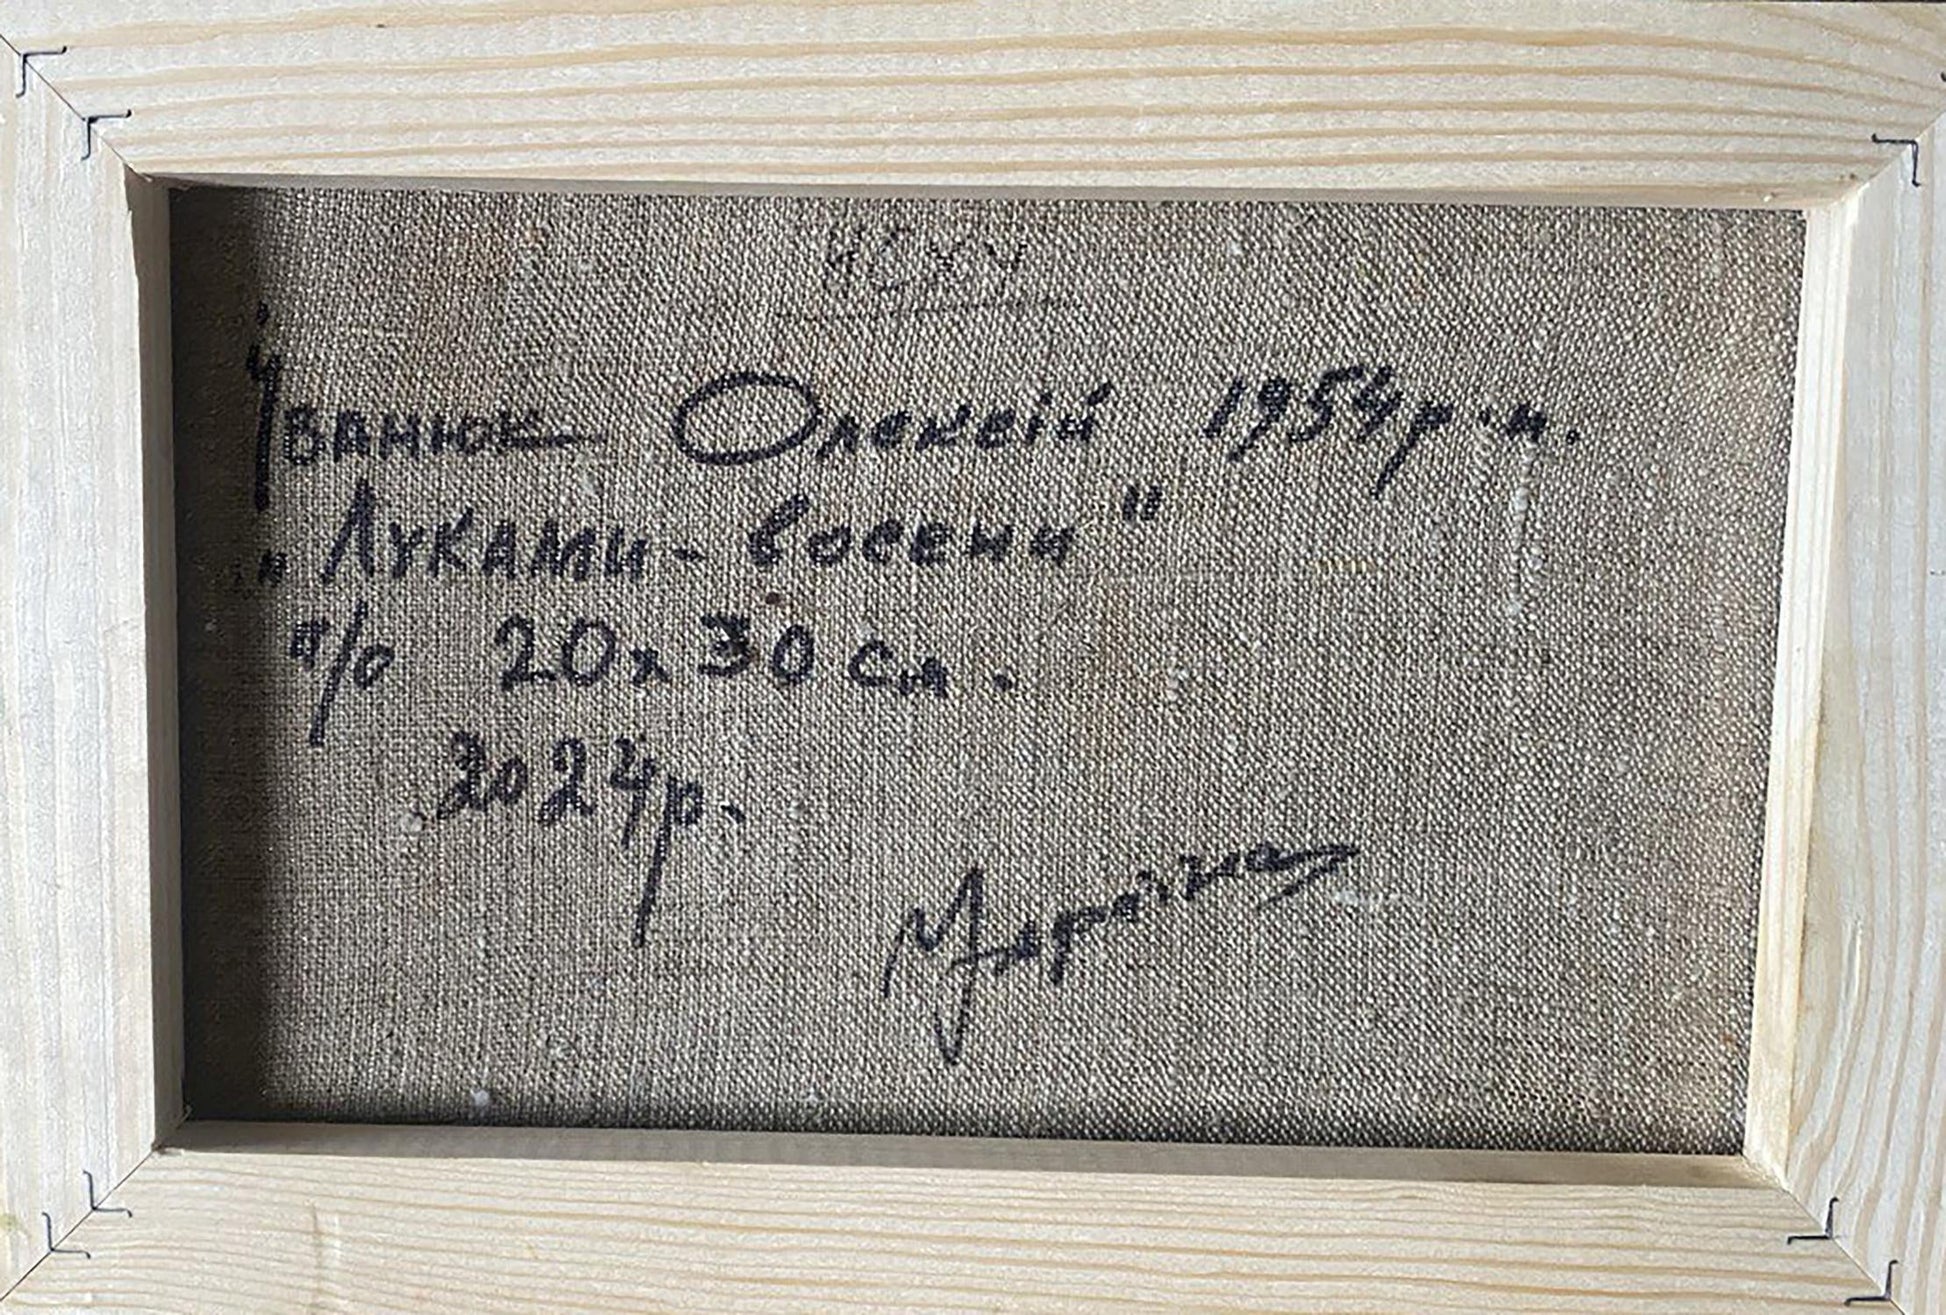 НСХУ
Іванюк Олексій 1954р.н.
„Луками-восени"
п/о 20х30см.
2024р.